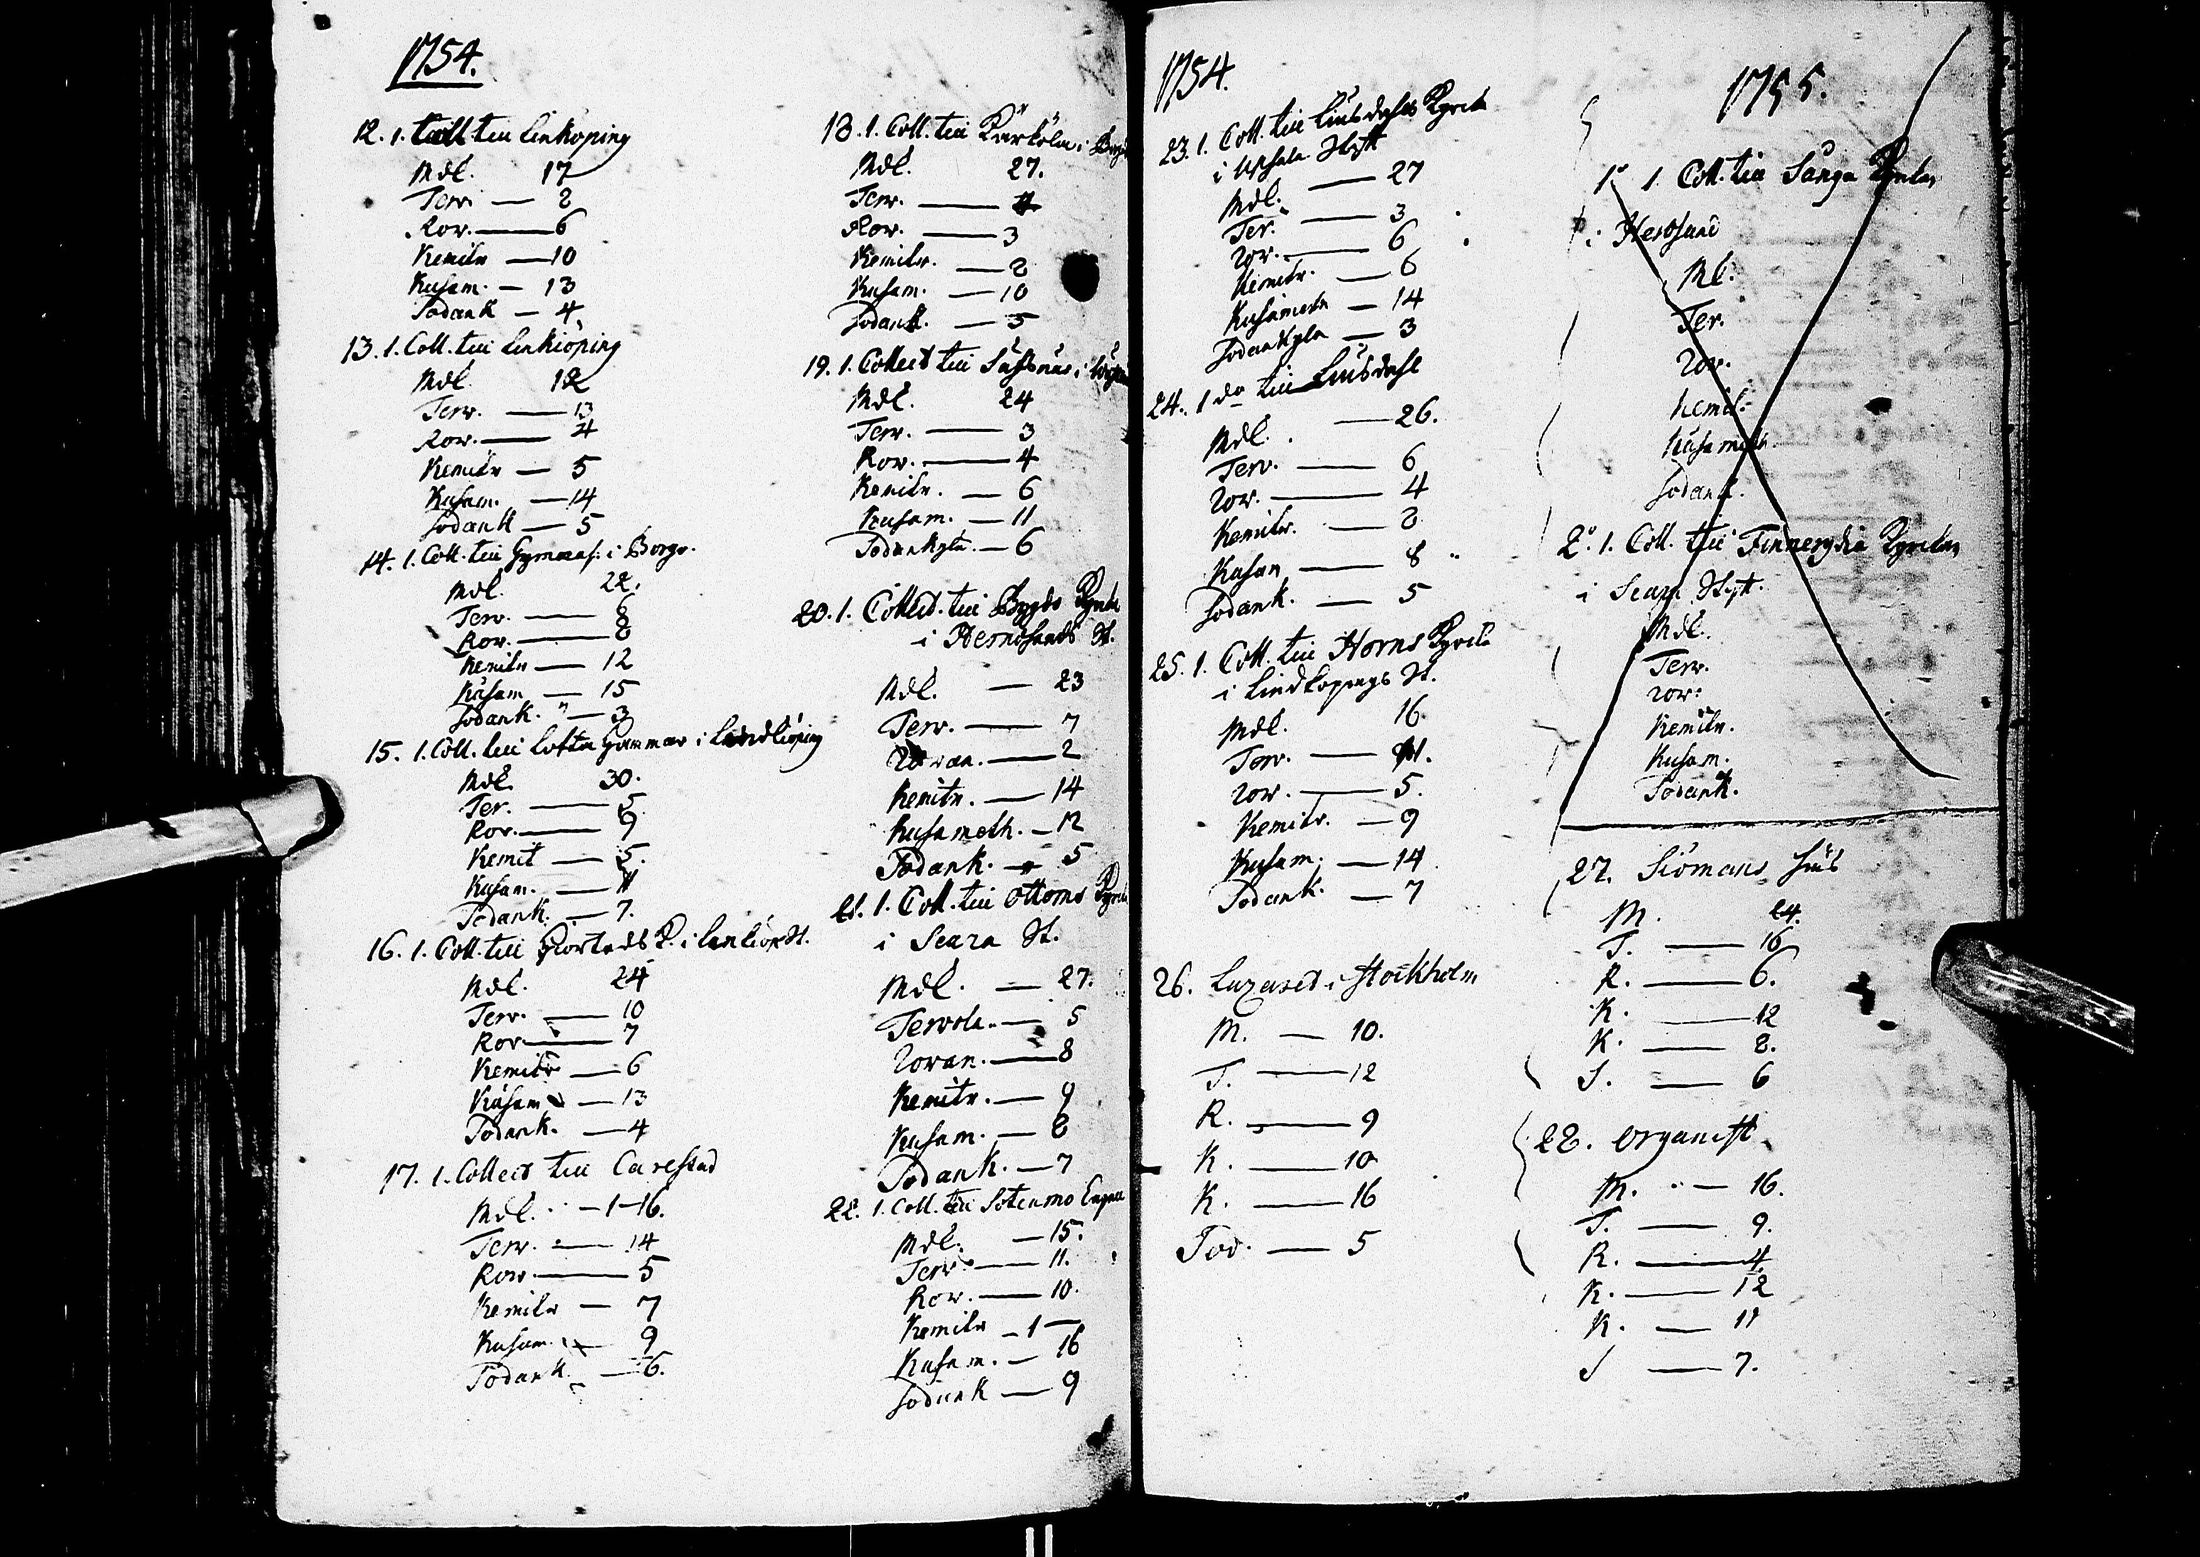 1754.
12. 1. Coll till Linköping
Mdl. 17
Terv. — 8
Rov. — 6
Kemitr — 10
Kusam. — 13
Sodank — 4
13. 1. Coll. till Linkiöping
Mdl. 18
Terv. — 13
Rov. — 4
Kemitr — 5
Kusam. — 14
Sodank — 5
14. 1. Coll. till Gymnas. i Borgo.
Mdl. 28.
Terv. — 8
Rov. — 8
Kemitr — 12
Kusam — 15
Sodank. " — 3
15. 1. Coll. till Lofta Gammar i
Mdl. 30.
Ter. — 5.
Rov. — 9
Kemit — 5.
Kusam. — 11
Sodank. — 7.
16. 1. Coll. till K. i Linkiöp St.
Mdl. 24
Terv. — 10
Rov — 7
Kemitr — 6
Kusam — 13
Sodank. — 4
17. 1. Collect till Carlstad
Mdl. — 1-16.
Terv. — 14
Rov — 5
Kemitr — 7
Kusam. — 9
Sodank — 6.
18. 1. Coll. till Kärkölä i
Mdl. 27.
Terv. — 4
Rov. — 3
Kemitr. — 8
Kusam. — 10
Sodank. — 5
19. 1. Collect till i
Mdl. 24
Terv. — 3
Rov. — 4
Kemitr. — 6
Kusam. — 11
Sodankyla. — 6
20. 1. Collect. till Bygde Kyrka
i Hernösands St.
Mdl. — 23
Terv. — 7
Rovan. — 2
Kemitr. — 14
Kusamoth. — 12
Sodank. — 5
21. 1. Coll. till Ottoms Kyrk
i Scara St.
Mdl. — 27.
Tervola. — 5
Rovan. — 8
Kemitr. — 9
Kusam. — 8
Sodank. — 7
22. 1. Coll. till Sotenmo
Mdl. — 15.
Terv. — 11.
Rov. — 10.
Kemitr — 1 —
Kusam. — 16
Sodank — 9
1754.
23. 1. Coll. till Liusdahls Kyrka
i Upsala Stift
Mdl. — 27
Ter. — 3
Rov. — 6
Kemitr. — 6
Kusamoth — 14
Sodankyla — 3
24. 1 do till Liusdahl
Mdl. — 26.
Terv. — 6
Rov. — 4
Kemitr. — 8
Kusam — 8
Sodank. — 5
25. 1. Coll. till Horns Kyrka
i Lindkopings St.
Mdl. 16.
Terv. — 11.
Rov. — 5.
Kemitr. — 9
Kusam. — 14
Sodank. — 7
26. Lazaret i Stockholm
M. — 10.
T. — 12
R. — 9
K. — 10
K. — 16
Sod. — 5
1755.
1o 1. Coll. till Sånga Kyrka
i Hernösand
Ml.
Ter.
Rov.
Kemit.
Kusamoth.
Sodank.
2o. 1. Coll. till Finnerydia Kyrka
i Scara Stift.
Mdl.
Terv.
Rov.
Kemitr.
Kusam.
Sodank.
27. Siömans hus
M. 24.
T. — 16
R. — 6.
K. — 12
K. — 8.
S. — 6
28. Organist
M. — 16.
T. — 9.
R. — 4.
K. — 12
K. — 11
S — 7.